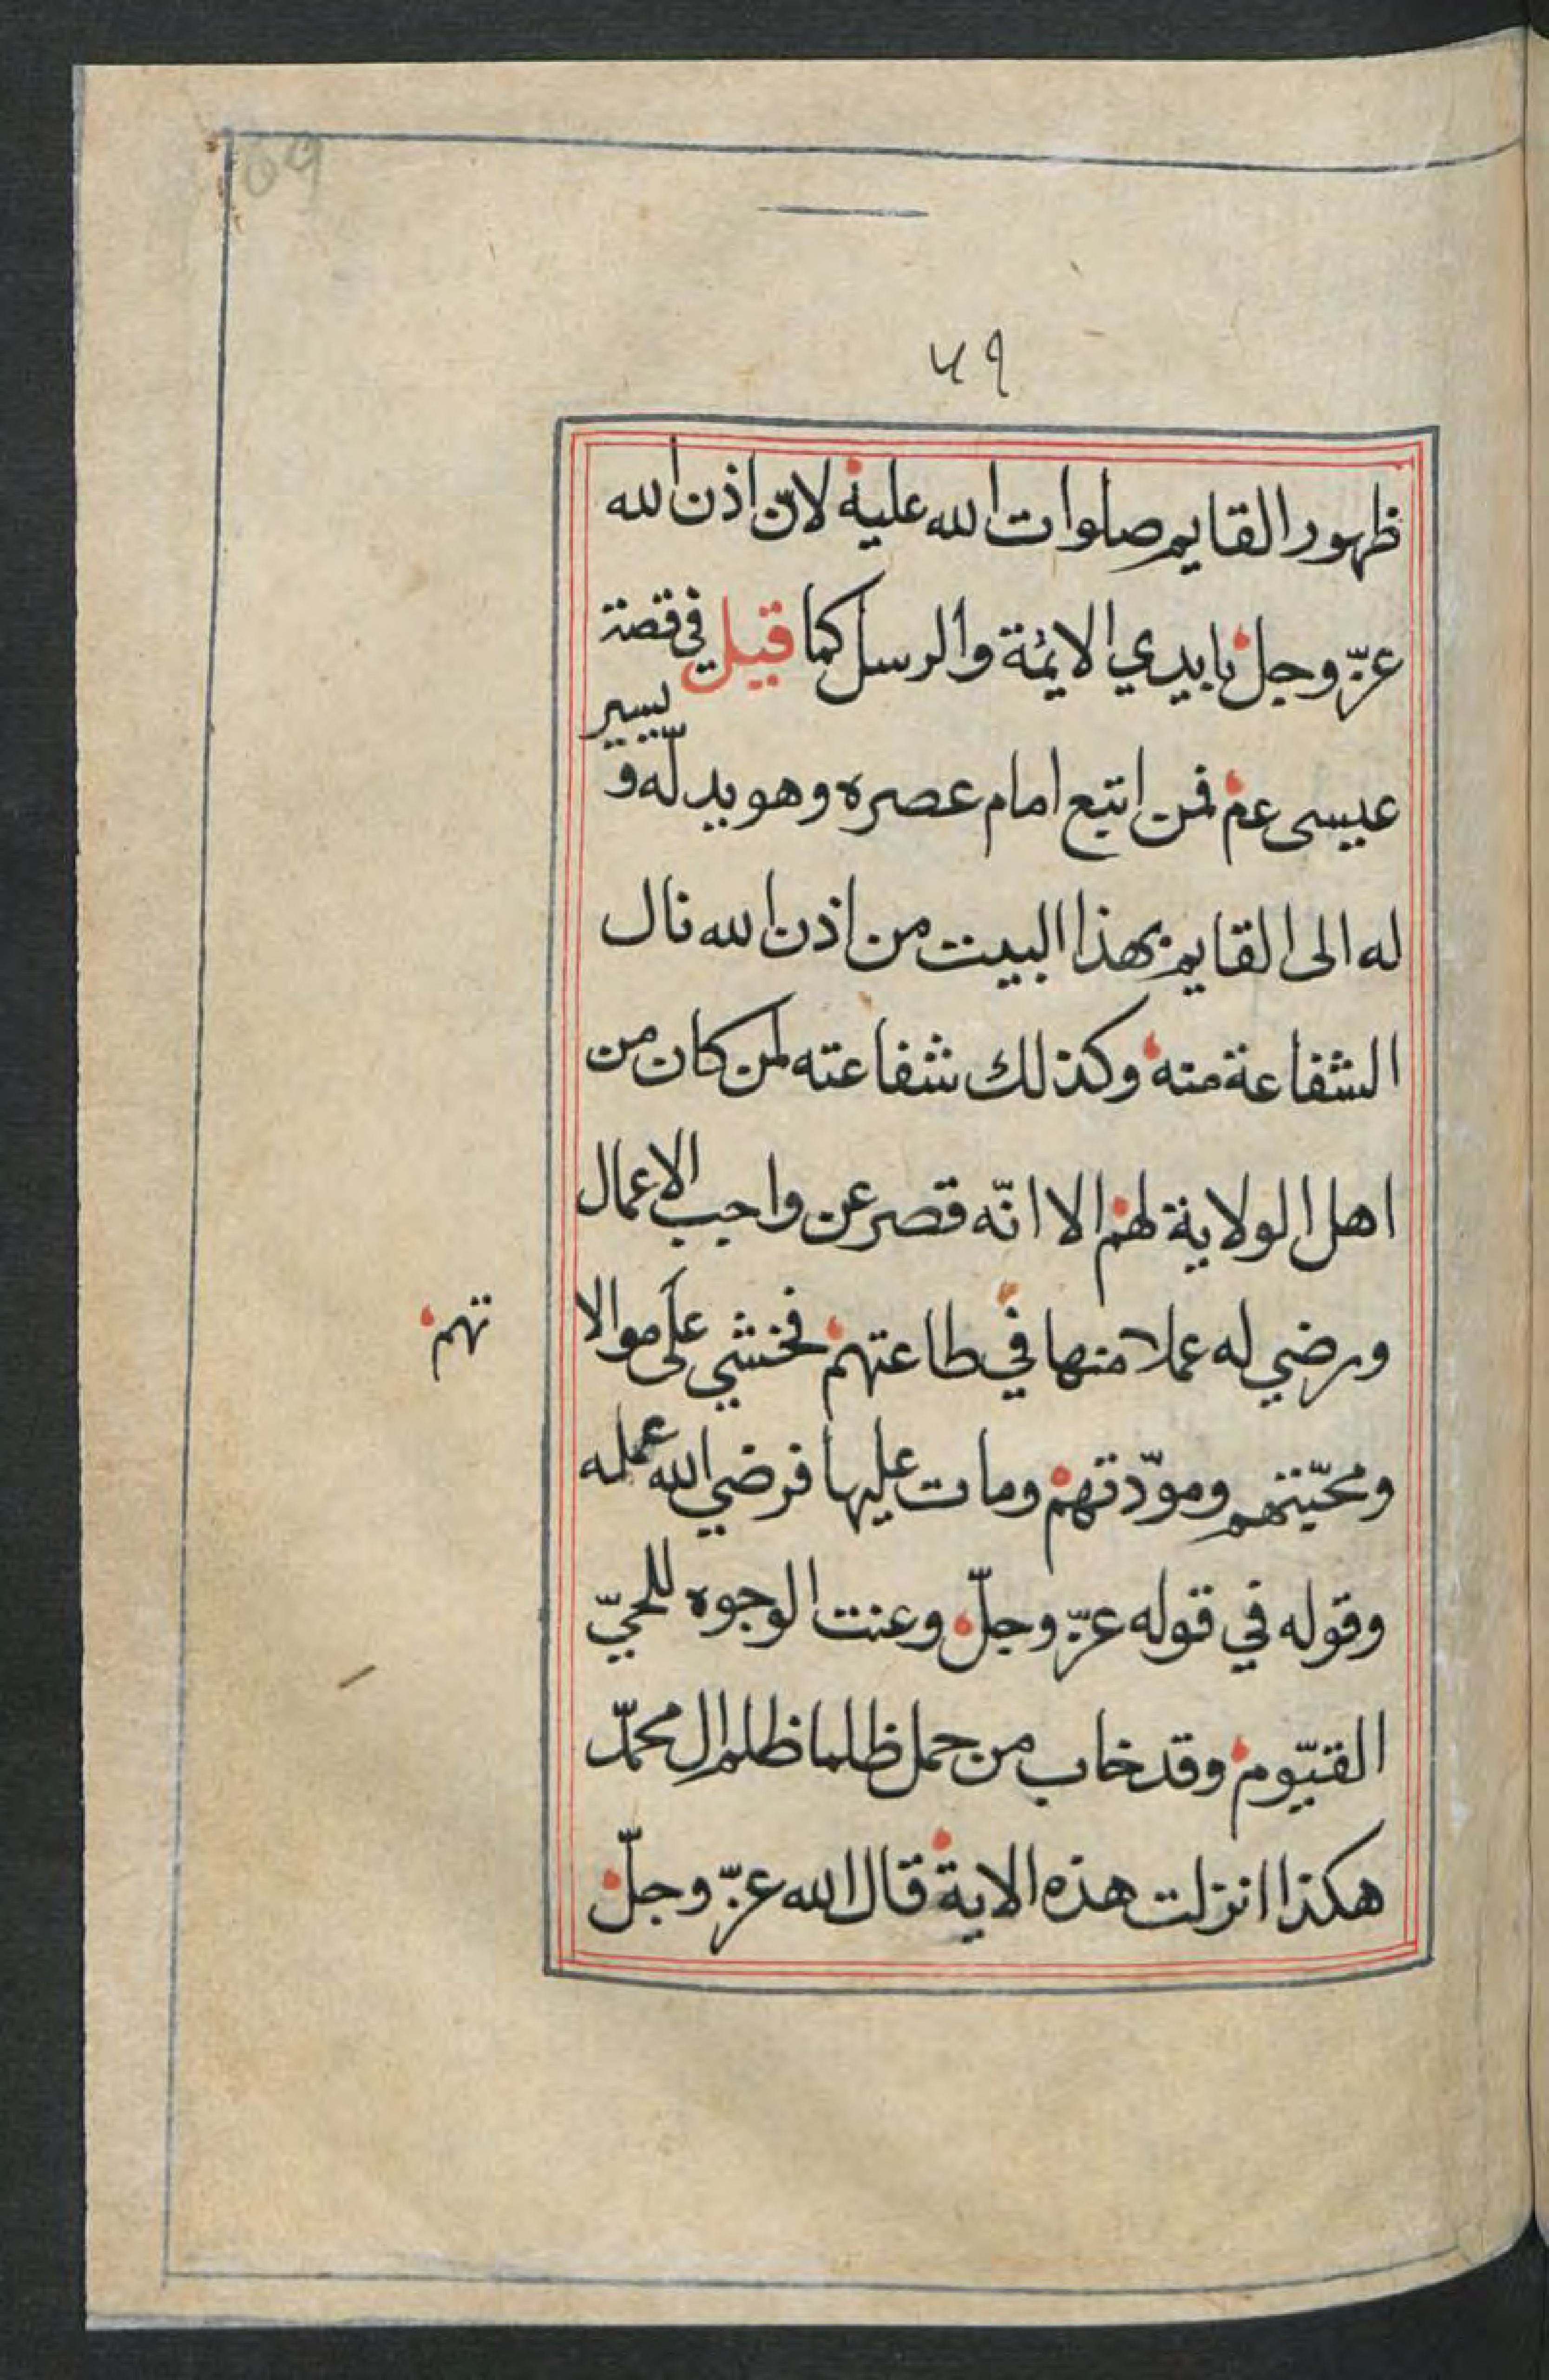 69
٧٩
ظهور القايم صلوات الله عليه لان اذن الله
عزّ وجل بايدي الايمٔة والرسل كما قيل في قصة
عيسى عم فمن اتبع امام عصره وهو يدلّه و يسير
له الى القايم بهذا البيت من اذن الله نال
الشفاعة منه وكذلك شفاعته لمن كان من
اهل الولاية لهم الا انّه قصر عن واجب الاعمال
ورضي له عملا منها في طاعتهم فخشي على موالا تهم
ومحبّتهم ومودّتهم ومات عليها فرضي الله عمله
وقوله في قوله عزّ وجلّ وعنت الوجوه للحيّ
القيّوم وقد خاب من حمل ظلما ظلم ال محمّد
هكذا انزلت هذه الاية قال الله عزّ وجلّ